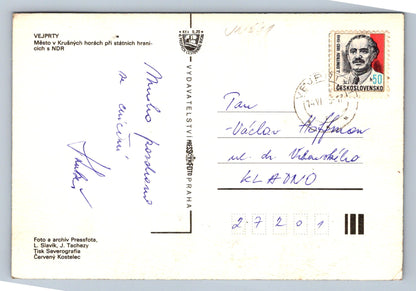 VEJPRTY
Město v Krušných horách při státních hrani-
cích s NDR
Mnoho pozdravů
Foto a archív Pressfota,
L. Slavík, J. Tachezy
Tisk Severografia
Červený Kostelec
VYDAVATELSTVÍ PRESSFOTO PRAHA
50
ČESKOSLOVENSKO
Pan
Václav Hoffman
ul. dr. Vrbenského
KLADNO
27201